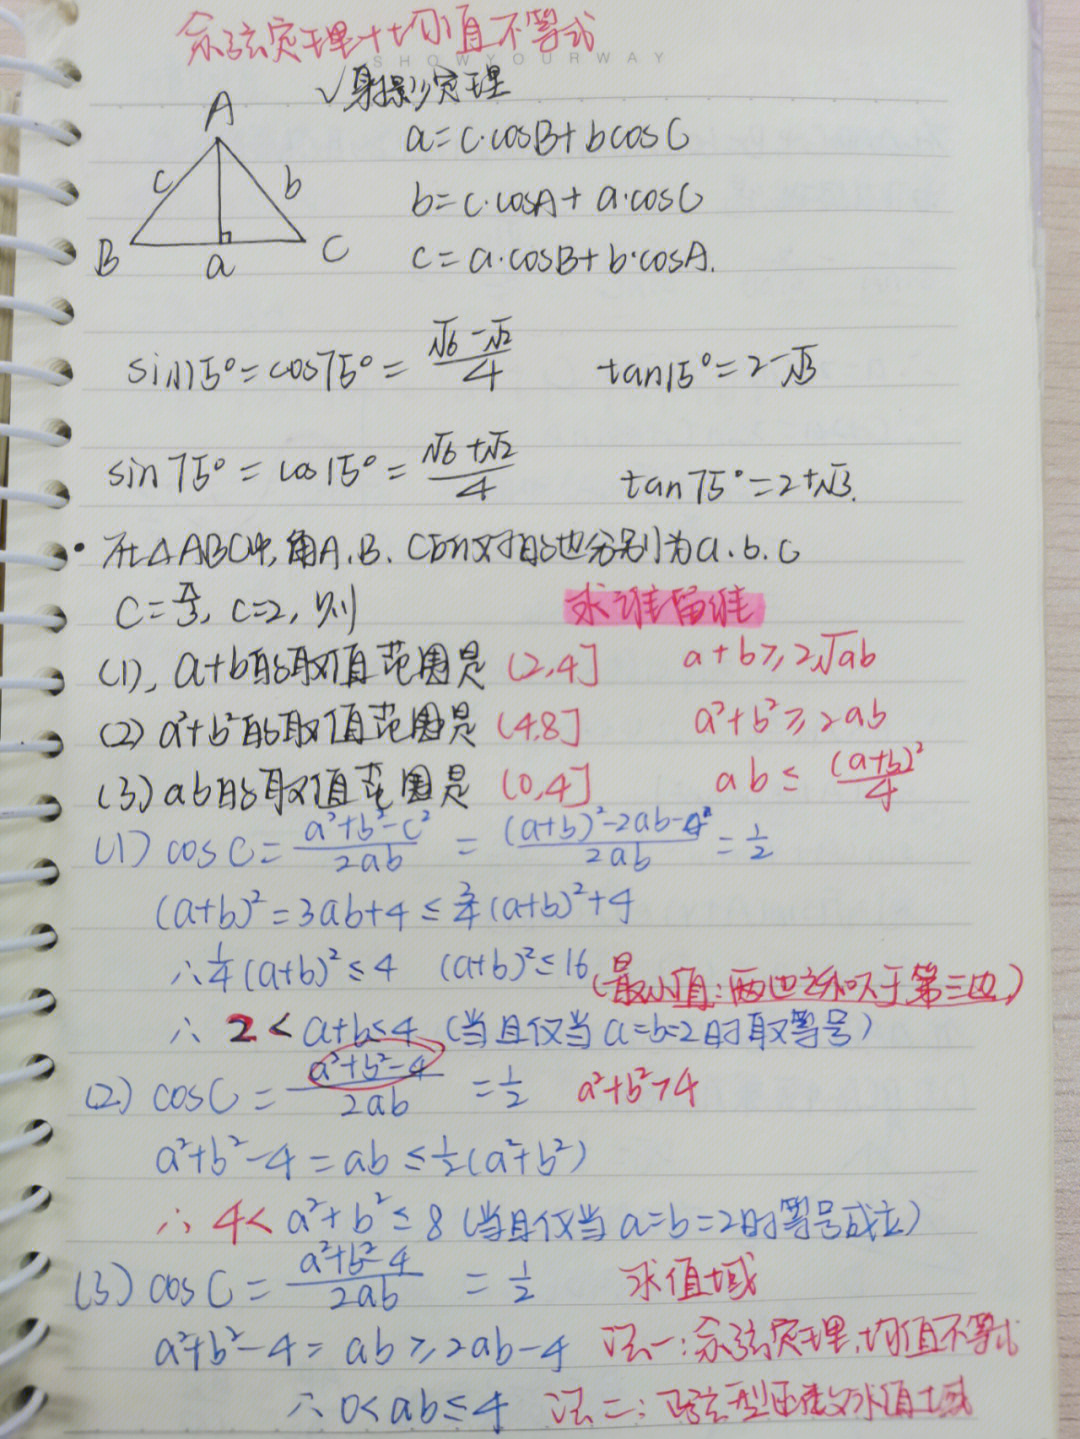 余弦定理+均值不等式
SHOWYOURWAY
√射影定理
A
c b
B a C
a=c·cosB+bcosC
b=c·cosA+a·cosC
c=a·cosB+b·cosA.
sin15°=cos75°=(√6-√2)/4 tan15°=2-√3
sin75°=cos15°=(√6+√2)/4 tan75°=2+√3.
·在△ABC中,角A.B.C所对的边分别为a.b.c
C=π/3, c=2, 则 求谁留谁
(1), a+b的取值范围是 (2,4] a+b≥2√ab
(2) a²+b²的取值范围是 (4,8] a²+b²≥2ab
(3) ab的取值范围是 (0,4] ab≤(a+b)²/4
(1) cosC=(a²+b²-c²)/2ab=((a+b)²-2ab-4)/2ab=1/2
(a+b)²=3ab+4≤3/4(a+b)²+4
∴1/4(a+b)²≤4 (a+b)²≤16 (最小值:两边之和大于第三边)
∴2<a+b≤4 (当且仅当a=b=2时取等号)
(2) cosC=(a²+b²-4)/2ab=1/2 a²+b²>4
a²+b²-4=ab≤1/2(a²+b²)
∴4<a²+b²≤8 (当且仅当a=b=2时等号成立)
(3) cosC=(a²+b²-4)/2ab=1/2 求值域
a²+b²-4=ab≥2ab-4 法一:余弦定理,均值不等式
∴0<ab≤4 法二:正弦型函数求值域